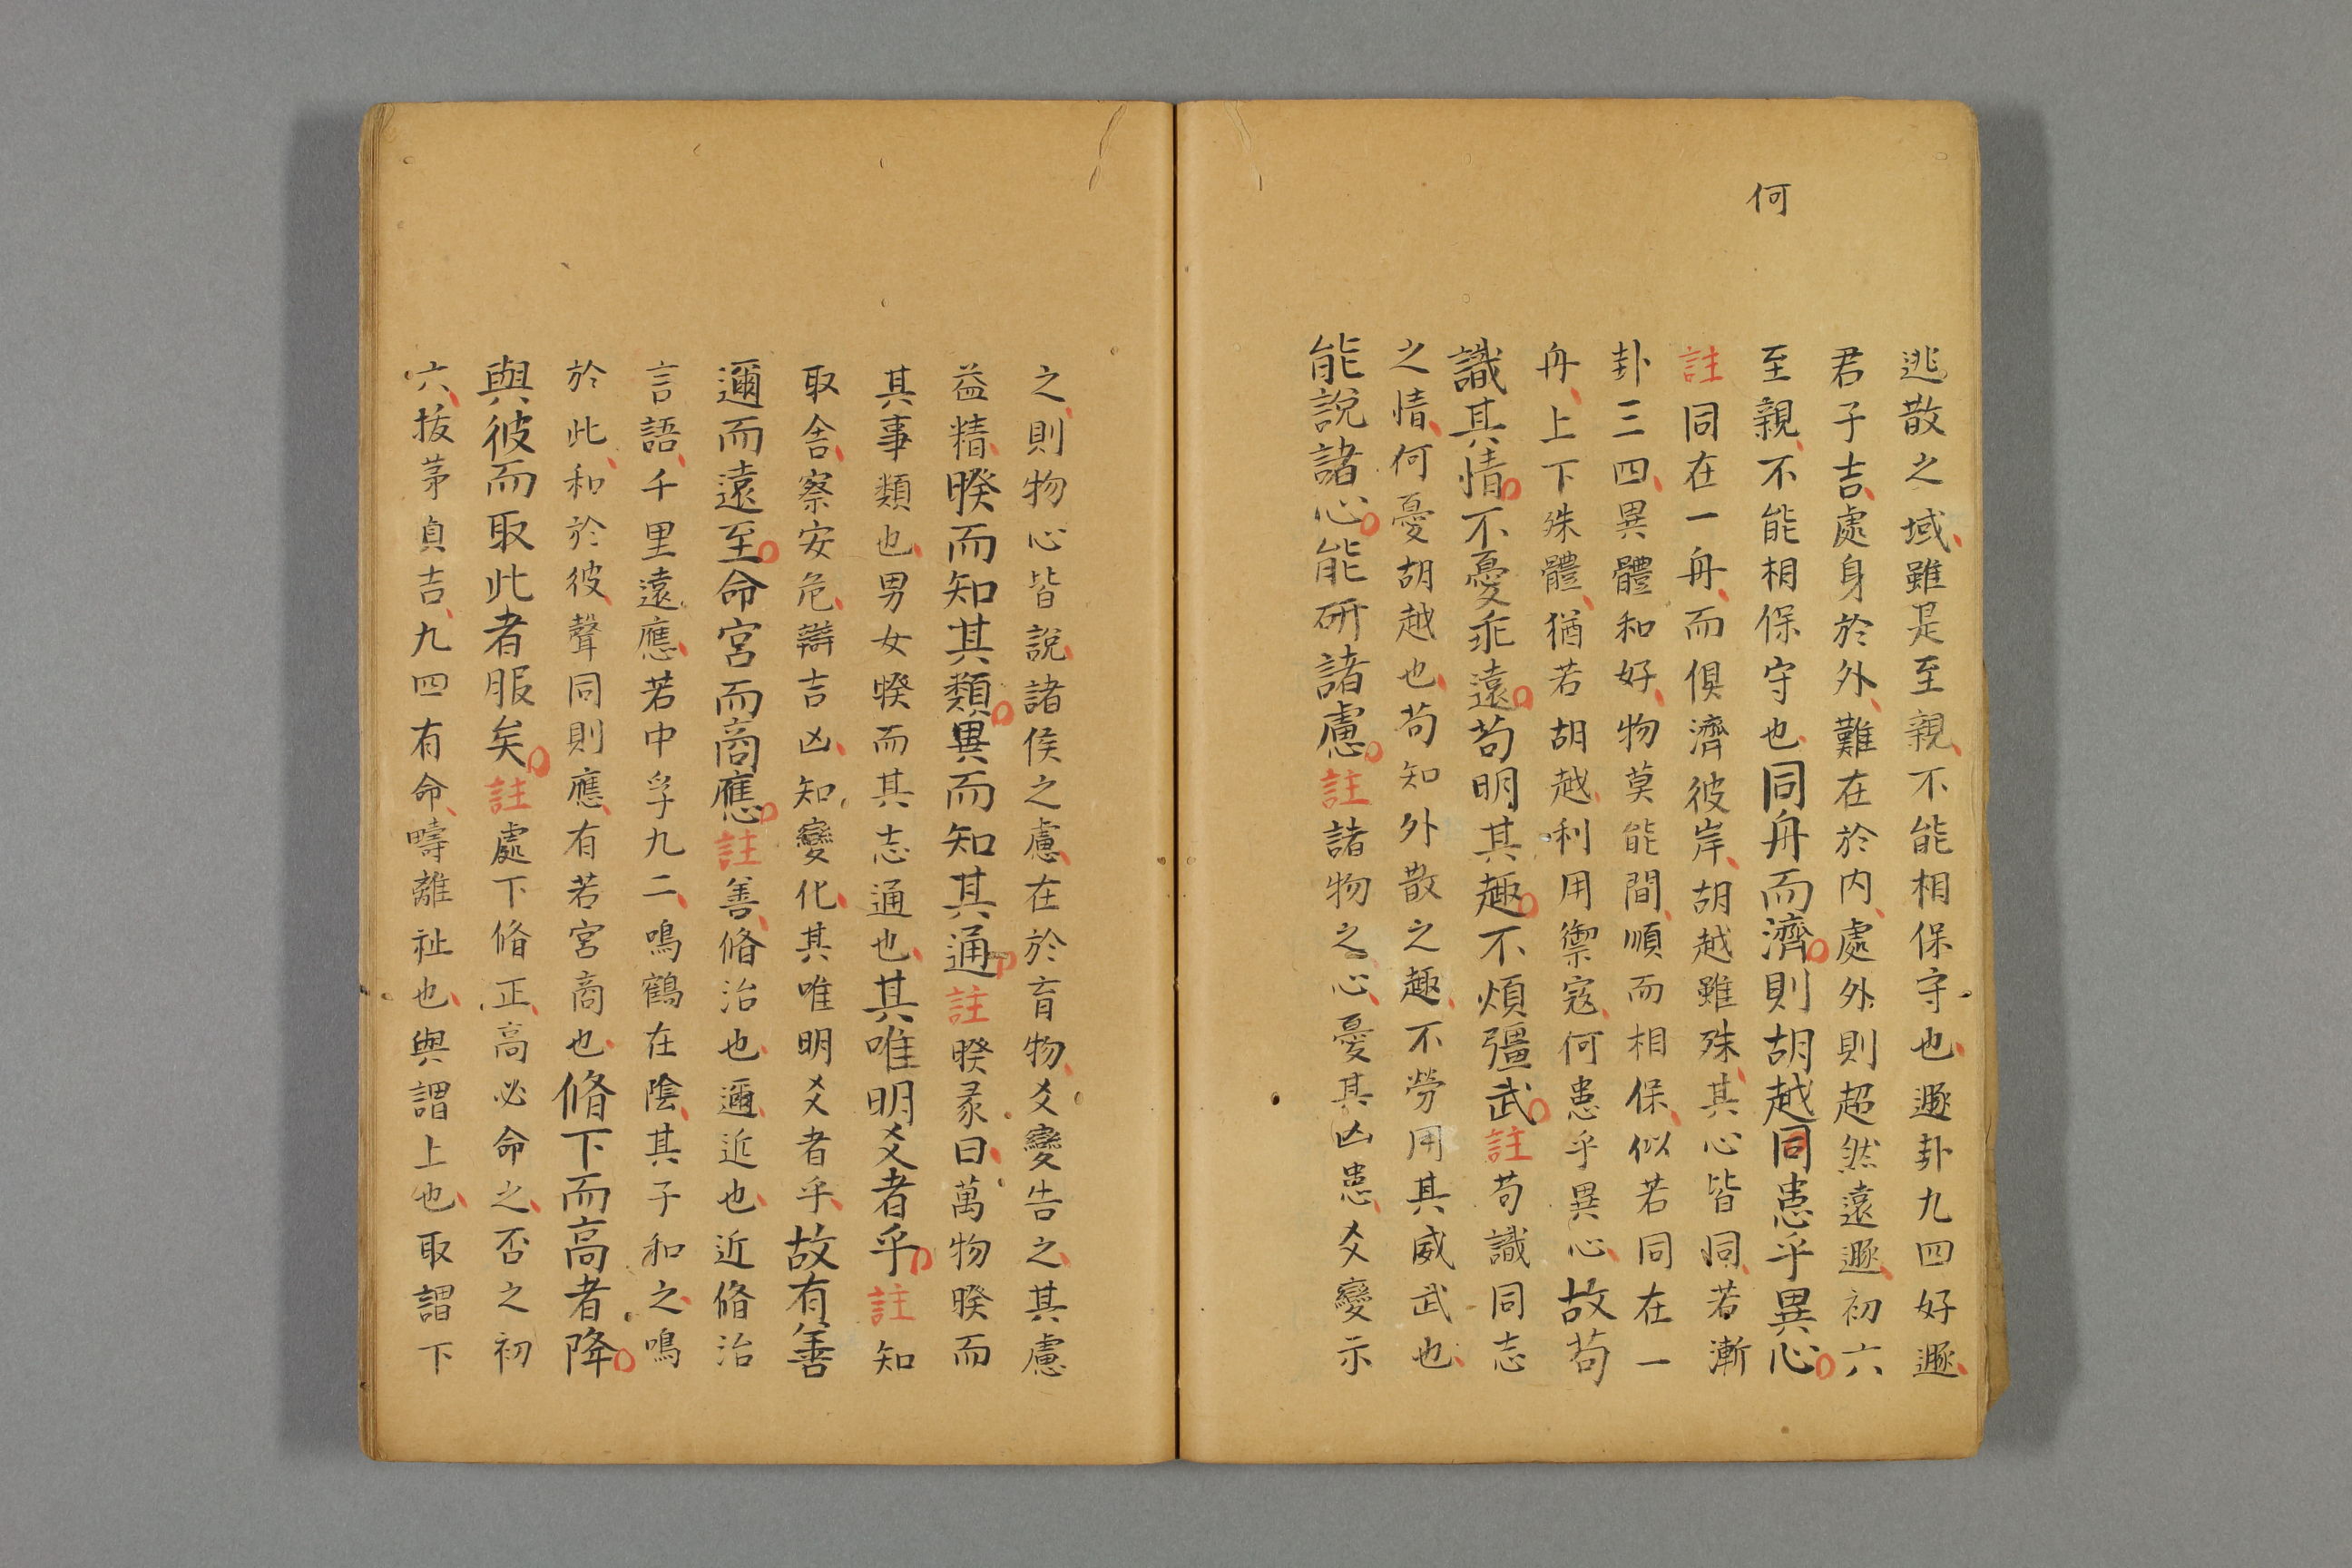 何
逃散之域雖是至親不能相保守也遯卦九四好遯
君子吉處身於外難在於内處外則超然遠遯初六
至親不能相保守也同舟而濟則胡越同患乎異心
註同在一舟而俱濟彼岸胡越雖殊其心皆同若漸
卦三四異體和好物莫能間順而相保似若同在一
舟上下殊體猶若胡越利用禦寇何患乎異心故苟
識其情不憂乖遠苟明其趣不煩彊武註苟識同志
之情何憂胡越也苟知外散之趣不勞用其威武也
能說諸心能研諸慮註諸物之心憂其凶患爻變示
之則物心皆說諸侯之慮在於育物爻變告之其慮
益精睽而知其類異而知其通註睽彖曰萬物睽而
其事類也男女睽而其志通也其唯明爻者乎註知
取舍察安危辯吉凶知變化其唯明爻者乎故有善
邇而遠至命宮而商應註善脩治也邇近也近脩治
言語千里遠應若中孚九二鳴鶴在陰其子和之鳴
於此和於彼聲同則應有若宮商也脩下而高者降
與彼而取此者服矣註處下脩正高必命之否之初
六拔茅貞吉九四有命疇離祉也與謂上也取謂下